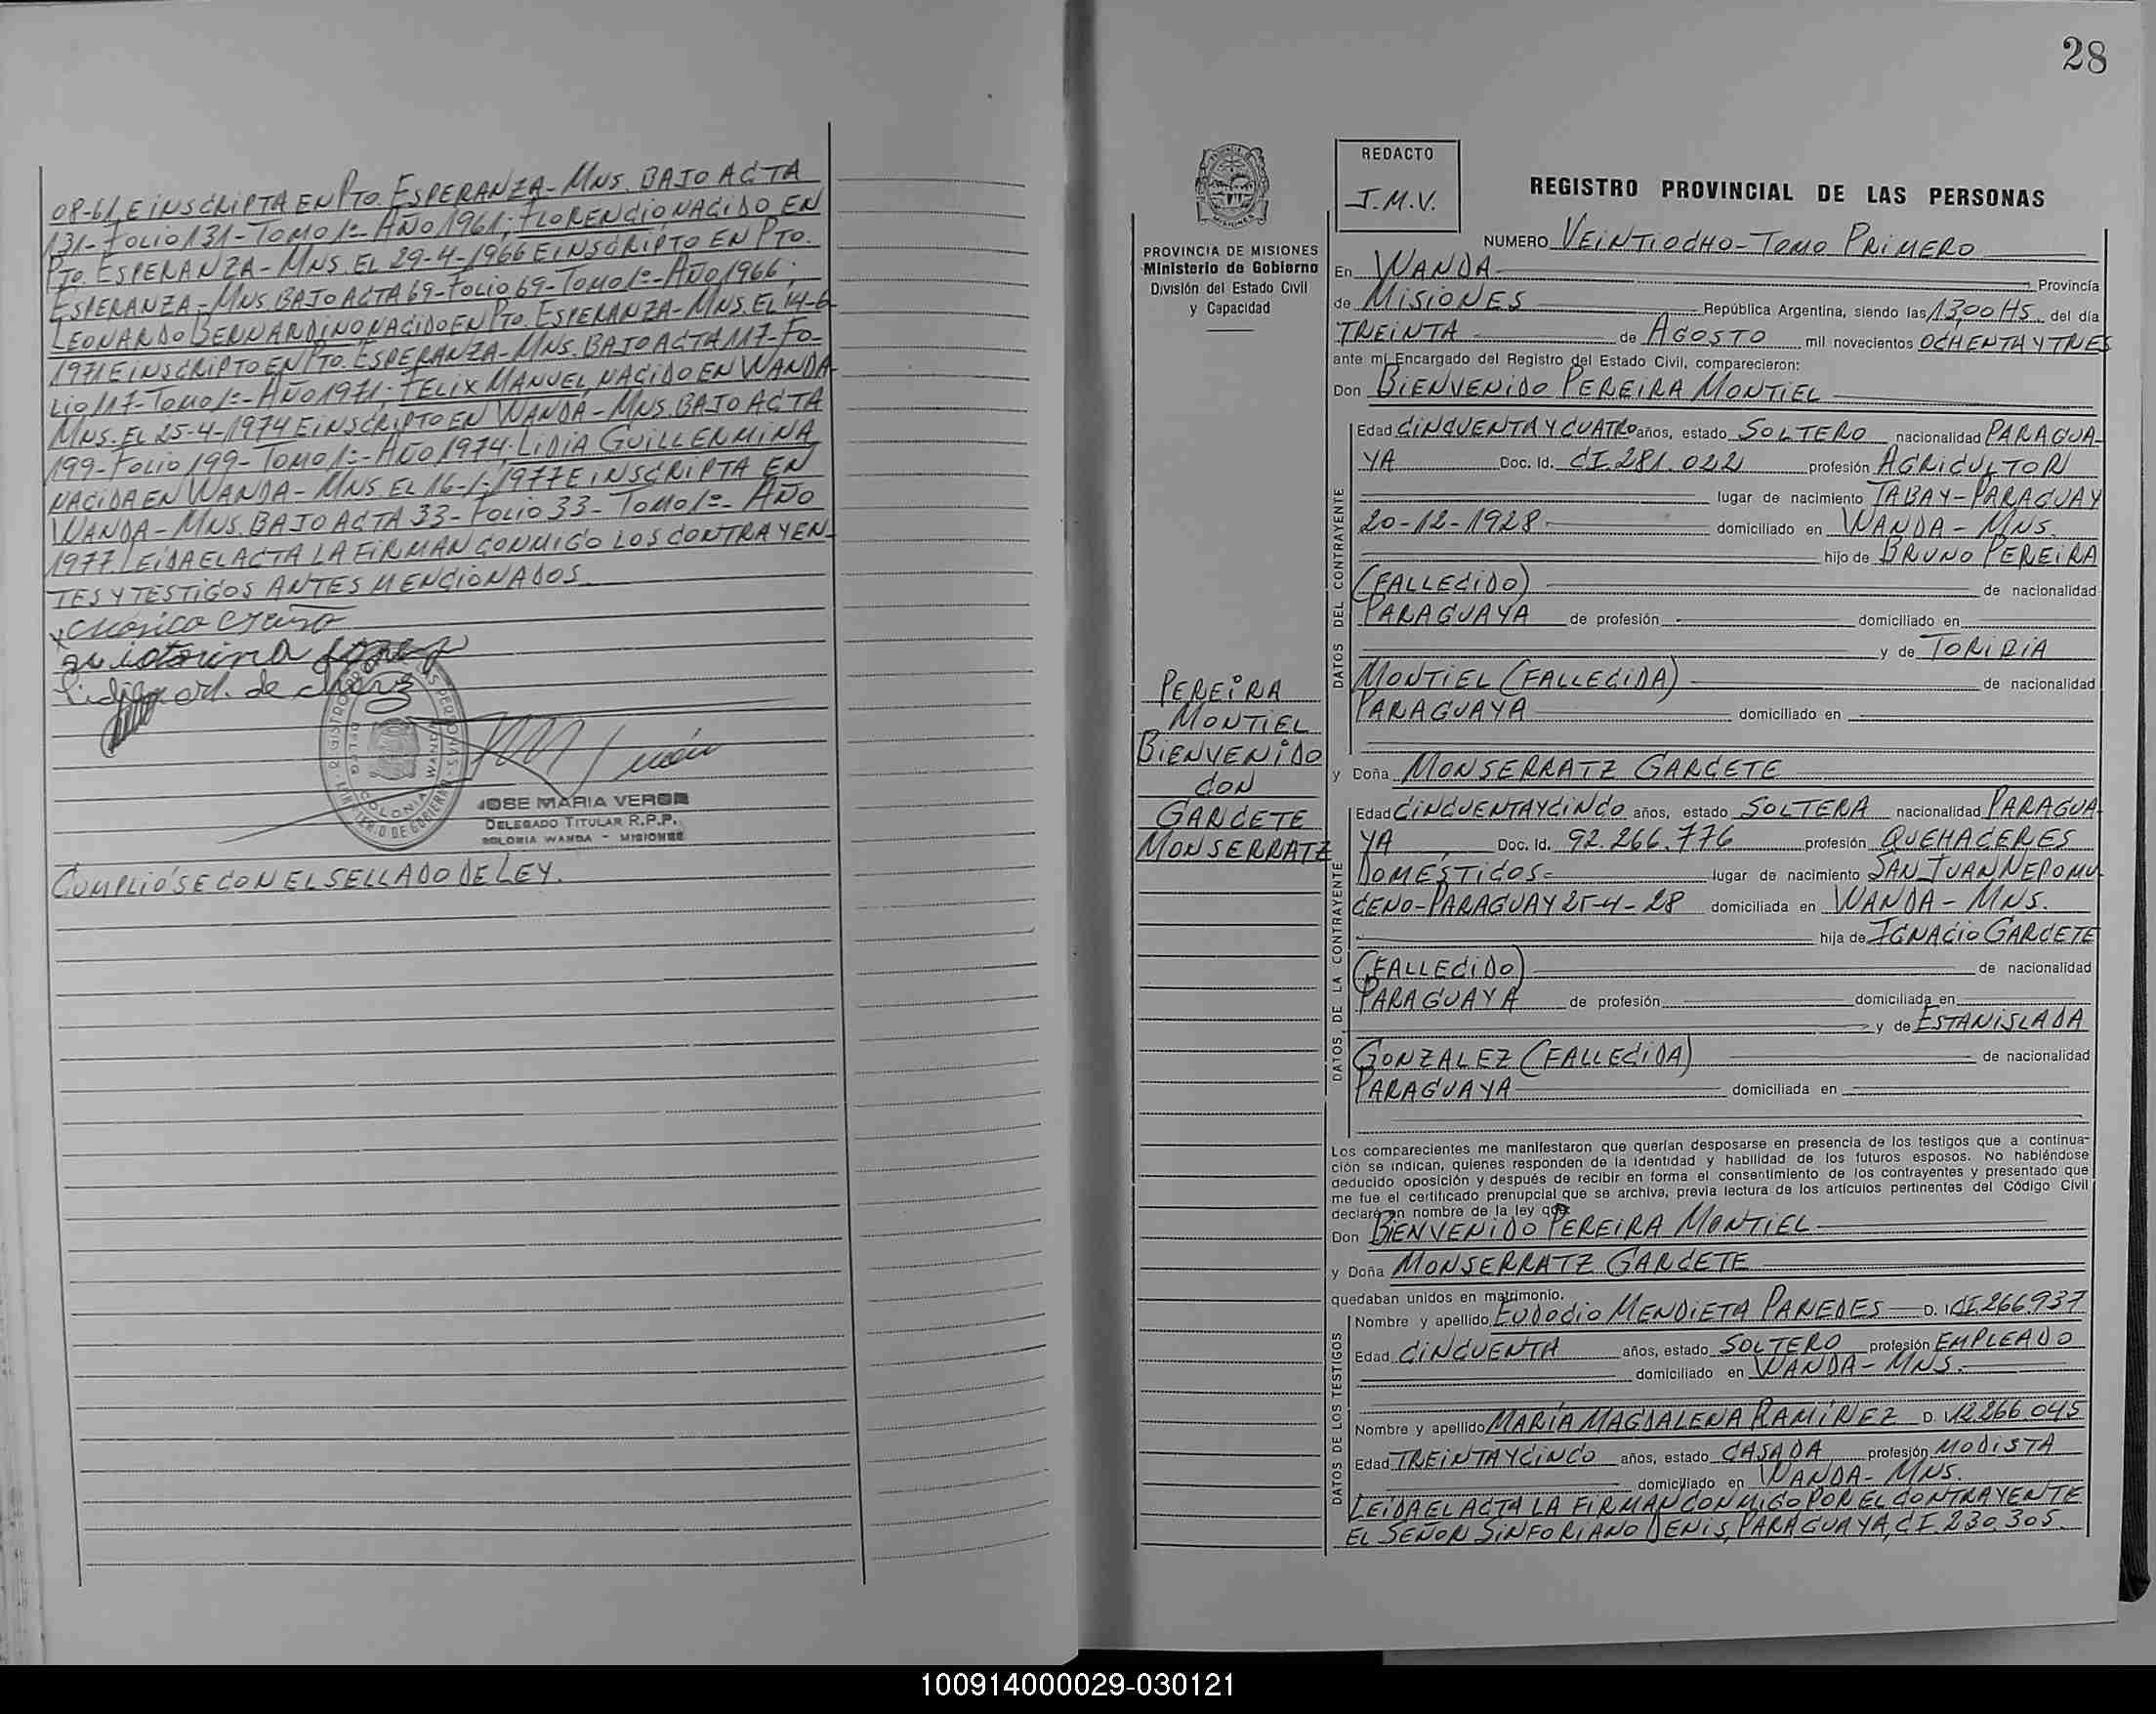 08-61, E INSCRIPTA EN PTO. ESPERANZA - MNS. BAJO ACTA
131- FOLIO 131- TOMO 1º- AÑO 1961; FLORENCIO NACIDO EN
PTO. ESPERANZA - MNS. EL 29-4-1966 E INSCRIPTO EN PTO.
ESPERANZA - MNS. BAJO ACTA 69- FOLIO 69- TOMO 1º- AÑO 1966;
LEONARDO BERNARDINO NACIDO EN PTO. ESPERANZA - MNS. EL 14-6-
1971 E INSCRIPTO EN PTO. ESPERANZA - MNS. BAJO ACTA 117- FO-
LIO 117- TOMO 1º- AÑO 1971; FELIX MANUEL NACIDO EN WANDA -
MNS. EL 25-4-1974 E INSCRIPTO EN WANDA - MNS. BAJO ACTA
199- FOLIO 199- TOMO 1º- AÑO 1974; LIDIA GUILLERMINA
NACIDA EN WANDA - MNS. EL 16-1-1977 E INSCRIPTA EN
WANDA - MNS. BAJO ACTA 33- FOLIO 33- TOMO 1º- AÑO
1977. LEIDA EL ACTA LA FIRMAN CONMIGO LOS CONTRAYEN-
TES Y TESTIGOS ANTES MENCIONADOS.
JOSE MARIA VERON
DELEGADO TITULAR R.P.P.
COLONIA WANDA - MISIONES
CUMPLIÓSE CON EL SELLADO DE LEY.
28
REDACTO
J.M.V.
PROVINCIA DE MISIONES
Ministerio de Gobierno
División del Estado Civil
y Capacidad
PEREIRA
MONTIEL
BIENVENIDO
CON
GARCETE
MONSERRATZ
REGISTRO PROVINCIAL DE LAS PERSONAS
NUMERO VEINTIOCHO - TOMO PRIMERO
En WANDA Provincia
de MISIONES República Argentina, siendo las 13,00 HS. del día
TREINTA de AGOSTO mil novecientos OCHENTA Y TRES
ante mí Encargado del Registro del Estado Civil, comparecieron:
Don BIENVENIDO PEREIRA MONTIEL
DATOS DEL CONTRAYENTE
Edad CINCUENTA Y CUATRO años, estado SOLTERO nacionalidad PARAGUA-
YA Doc. Id. CI. 281.022 profesión AGRICULTOR
lugar de nacimiento TABAY - PARAGUAY
20-12-1928 domiciliado en WANDA - MNS.
hijo de BRUNO PEREIRA
(FALLECIDO) de nacionalidad
PARAGUAYA de profesión domiciliado en
y de TORIRIA
MONTIEL (FALLECIDA) de nacionalidad
PARAGUAYA domiciliado en
y Doña MONSERRATZ GARCETE
DATOS DE LA CONTRAYENTE
Edad CINCUENTA Y CINCO años, estado SOLTERA nacionalidad PARAGUA-
YA Doc. Id. 92.266.776 profesión QUEHACERES
DOMÉSTICOS lugar de nacimiento SAN JUAN NEPOMU-
CENO - PARAGUAY 25-4-28 domiciliada en WANDA - MNS.
hija de IGNACIO GARCETE
(FALLECIDO) de nacionalidad
PARAGUAYA de profesión domiciliada en
y de ESTANISLADA
GONZALEZ (FALLECIDA) de nacionalidad
PARAGUAYA domiciliada en
Los comparecientes me manifestaron que querían desposarse en presencia de los testigos que a continua-
ción se indican, quienes responden de la identidad y habilidad de los futuros esposos. No habiéndose
deducido oposición y después de recibir en forma el consentimiento de los contrayentes y presentado que
me fue el certificado prenupcial que se archiva, previa lectura de los artículos pertinentes del Código Civil
declaré en nombre de la ley que:
Don BIENVENIDO PEREIRA MONTIEL
y Doña MONSERRATZ GARCETE
quedaban unidos en matrimonio.
DATOS DE LOS TESTIGOS
Nombre y apellido EUDOCIO MENDIETA PAREDES D. I. CI. 266.937
Edad CINCUENTA años, estado SOLTERO profesión EMPLEADO
domiciliado en WANDA - MNS.
Nombre y apellido MARÍA MAGDALENA RAMÍREZ D. I. 12.266.045
Edad TREINTA Y CINCO años, estado CASADA profesión MODISTA
domiciliado en WANDA - MNS.
LEIDA EL ACTA LA FIRMAN CONMIGO POR EL CONTRAYENTE
EL SEÑOR SINFORIANO DENIS, PARAGUAYA, CI. 230.305.
100914000029-030121